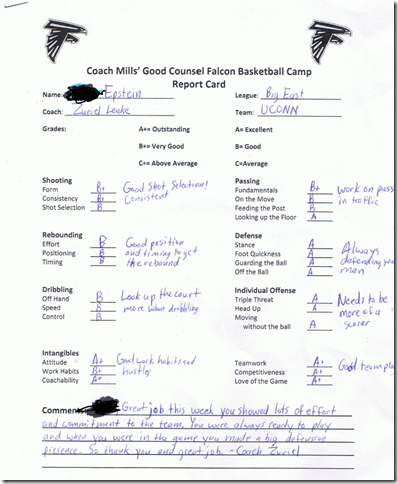 Coach Mills' Good Counsel Falcon Basketball Camp
Report Card
Name: Epstein League: Big East
Coach: Zuriel Leake Team: UCONN
Grades: A+= Outstanding A= Excellent
B+= Very Good B= Good
C+= Above Average C=Average
Shooting
Form B+ Good Shot Selection!
Consistency B+ Consistent
Shot Selection B
Passing
Fundamentals B+ work on pass
On the Move B in traffic
Feeding the Post B
Looking up the Floor A
Rebounding
Effort B Good position
Positioning B and timing to get
Timing B the rebound
Defense
Stance A Always
Foot Quickness A defending
Guarding the Ball A man
Off the Ball A
Dribbling
Off Hand B Look up the court
Speed B more when dribbling
Control B
Individual Offense
Triple Threat A Needs to be
Head Up A more of a
Moving scorer
without the ball A
Intangibles
Attitude A+ Good work habits and
Work Habits B+ hustles
Coachability A+
Teamwork A+
Competitiveness A+ Good team
Love of the Game A+
Comments: Great job this week you showed lots of effort
and commitment to the team. You were always ready to play
and when you were in the game you made a big defensive
presence. So thank you and great job. - Coach Zuriel